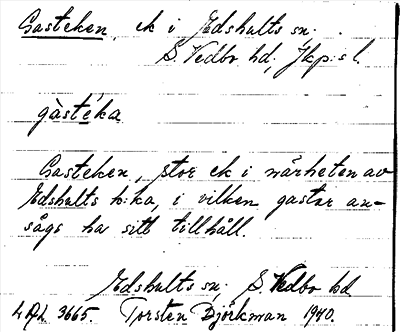 Gasteken, ek i Edshults sn.
S. Vedbo hd, Jkp:s l.
gàsteka
Gasteken, stor ek i närheten av
Edshults k:ka, i vilken gastar an-
sågs ha sitt tillhåll.
Edshults sn, S. Vedbo hd
3665. Torsten Björkman 1940.